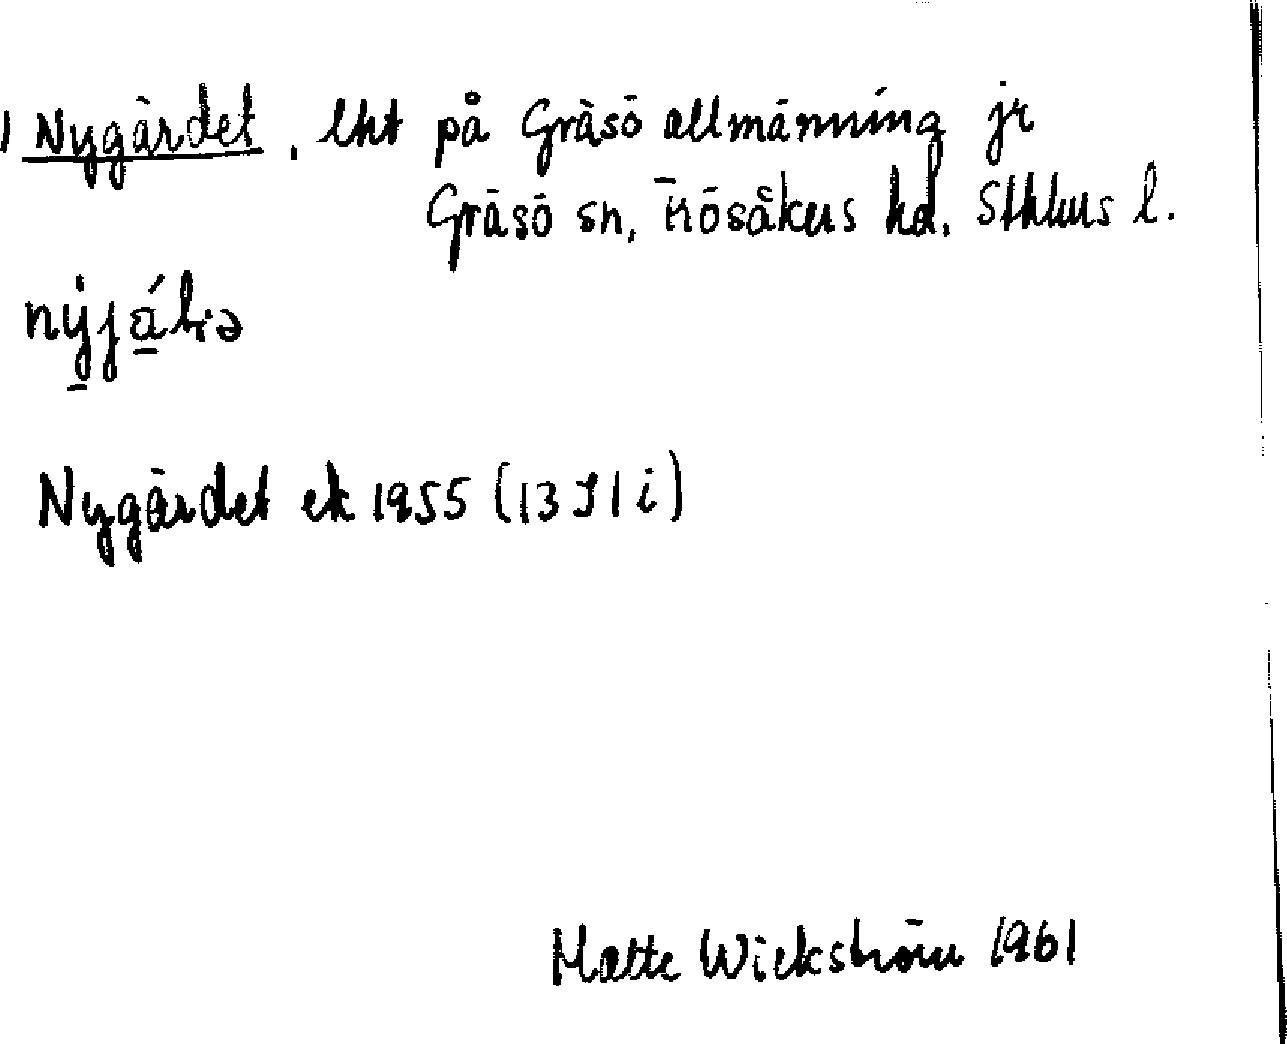 1 Nygärdet, lht på Gräsö allmänning jr
Gräsö sn, Frösåkers hd. Sthlms l.
Nygärdet ek 1955 (13 I 1 i)
Matte Wickström 1961